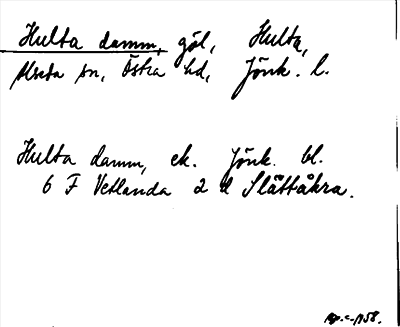 Hulta damm, göl, Hulta,
Alseda sn, Östra hd, Jönk. l.
Hulta damm, ek. Jönk. bl.
6 F Vetlanda 2 d Slättåkra.